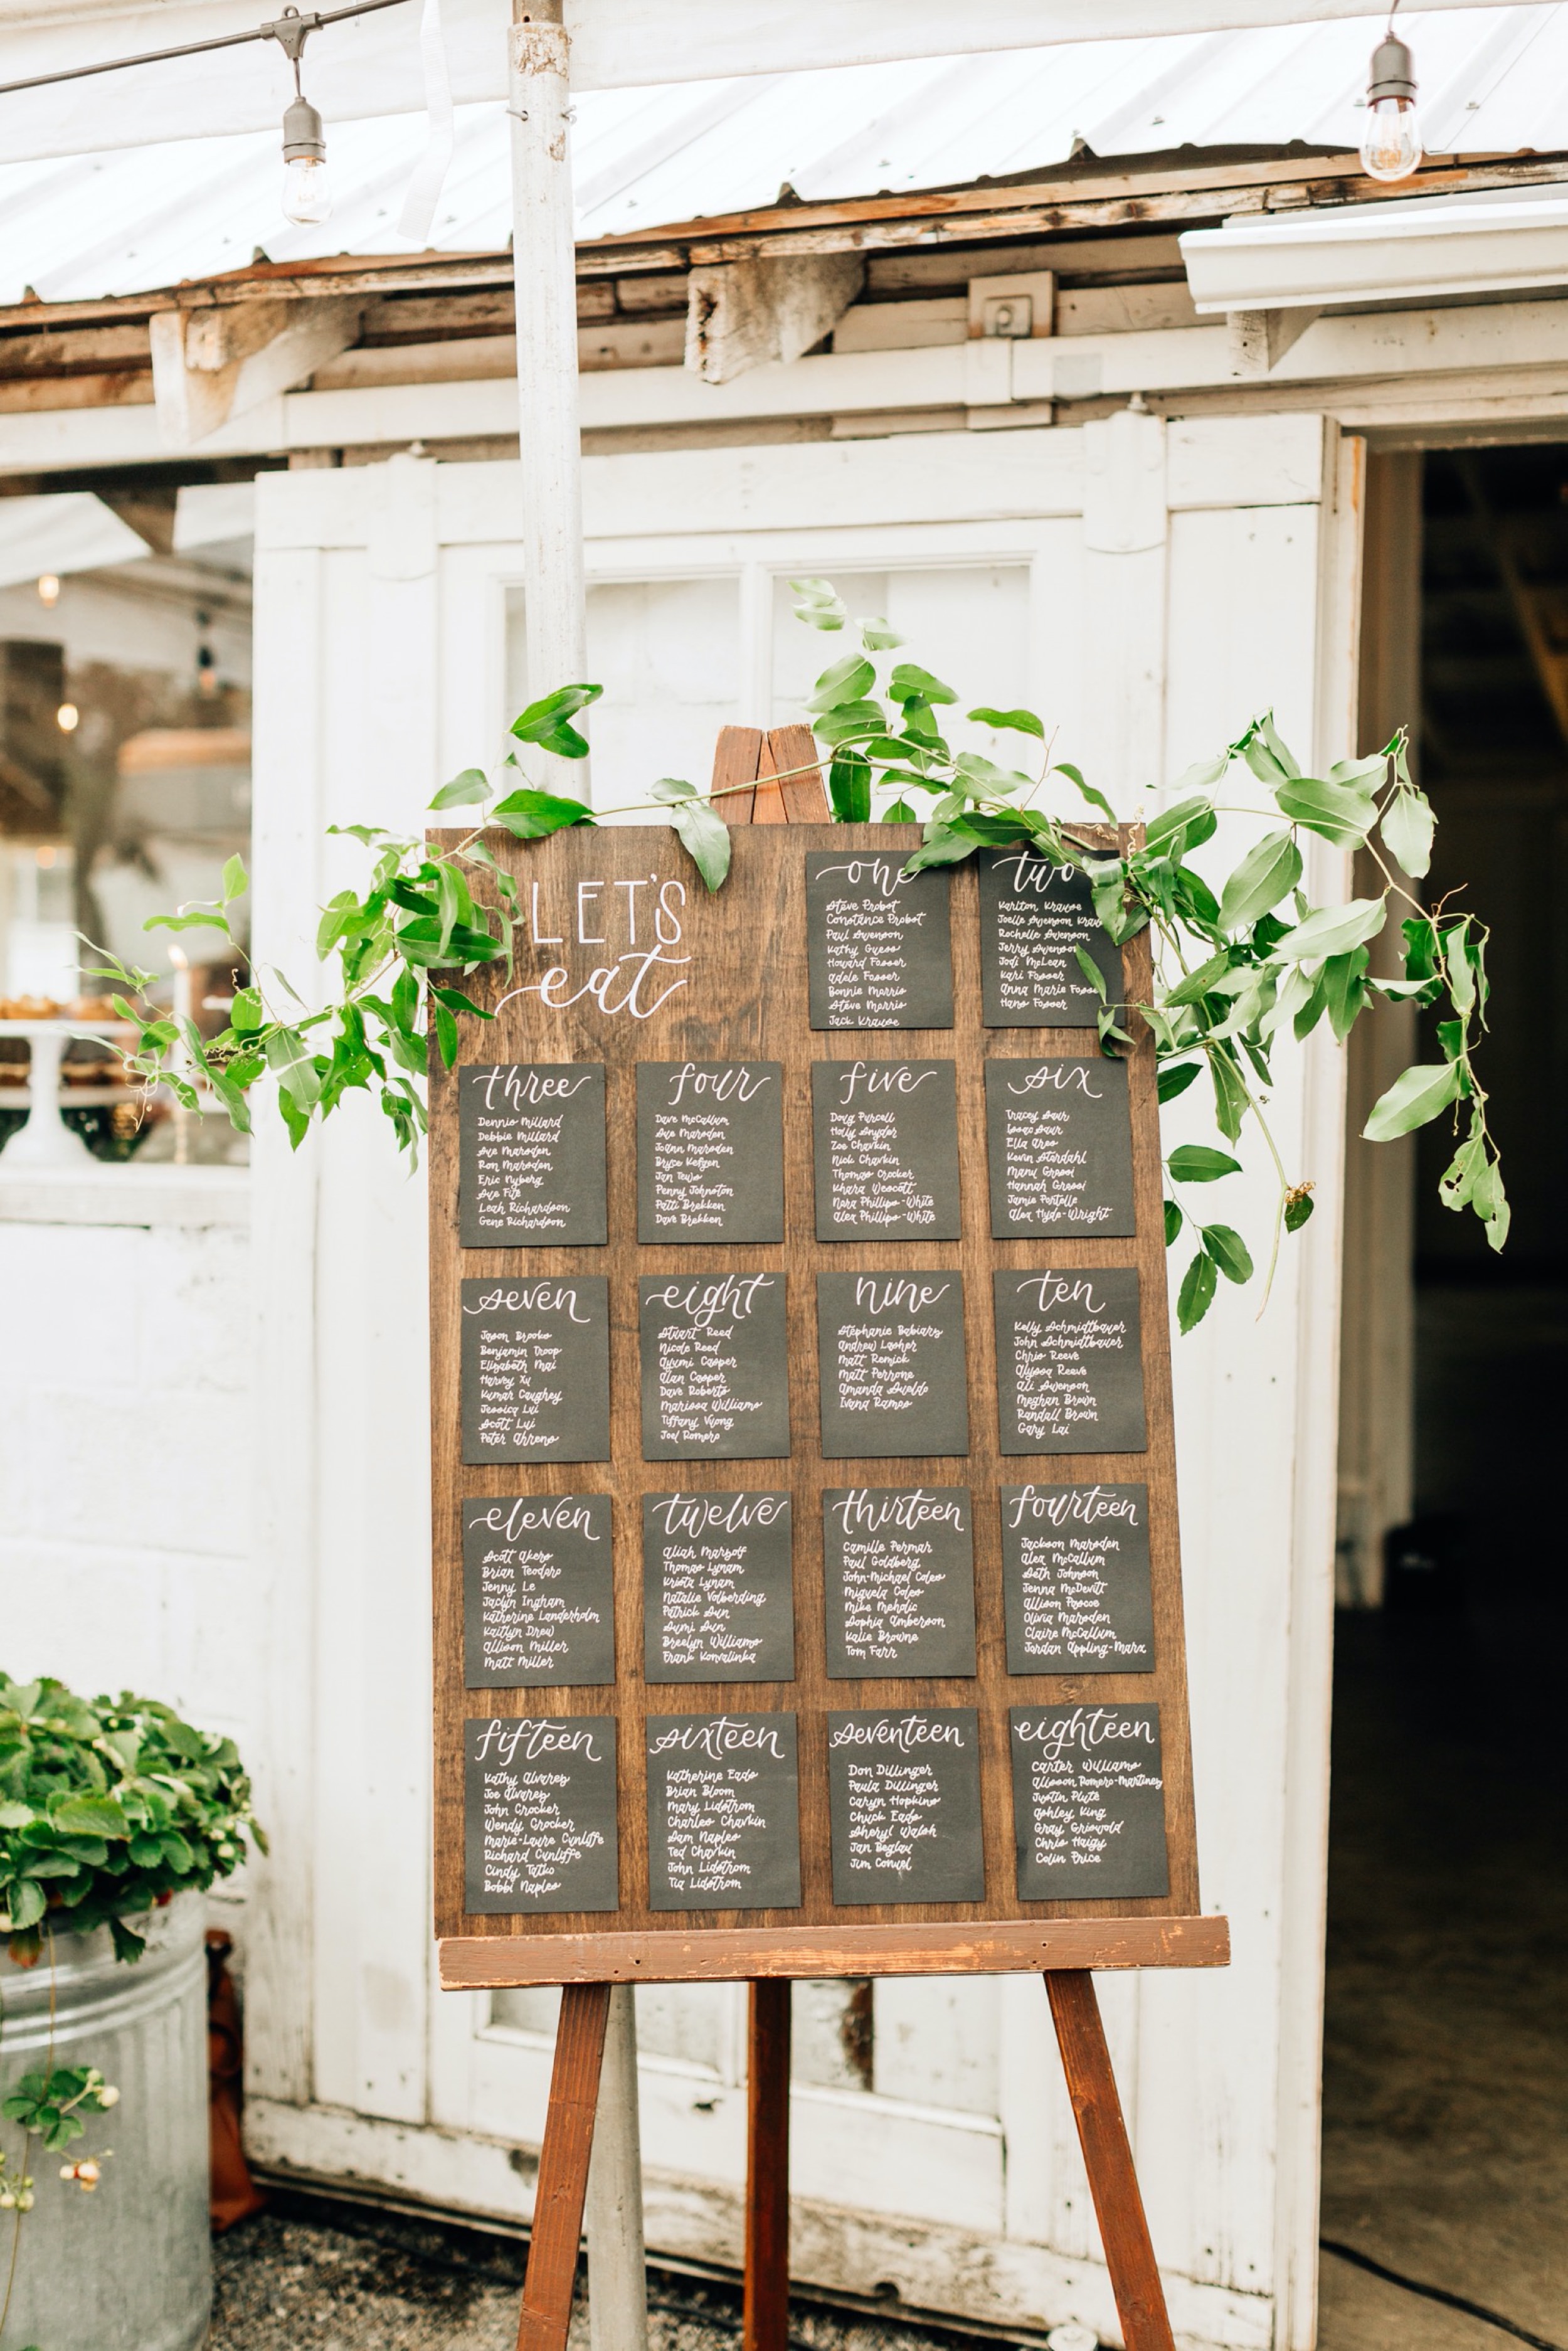 LET'S
eat
one
Steve Probot
Constance Probot
Paul Swenson
Kathy Guess
Howard Fosser
Adele Fosser
Bonnie Morris
Steve Morris
Jack Krause
two
Karlton Krause
Joelle Swenson
Rochelle Swenson
Jerry Swenson
Jodi McLean
Kari Fosser
Anna Marie
Hans Fosser
three
Dennis Millard
Debbie Millard
Sue Marsden
Ron Marsden
Eric Nyberg
Sue Fife
Leah Richardson
Gene Richardson
four
Dave McCallum
Sue Marsden
Joann Marsden
Bryce Kefgen
Jan Tews
Penny Johnston
Patti Brekken
Dave Brekken
five
Doug Purcell
Holly Snyder
Zoe Chavkin
Nick Chavkin
Thomas Crocker
Khara Wescott
Nora Phillips-White
Alex Phillips-White
six
Tracey Saur
Isaac Saur
Ella Ares
Kevin Stordahl
Manu Grossi
Hannah Grossi
Jamie Portelle
Alex Hyde-Wright
seven
Jason Brooks
Benjamin Troop
Elizabeth Mai
Harvey Xu
Kumar Caughey
Jessica Lui
Scott Lui
Peter Ahrens
eight
Stuart Reed
Nicole Reed
Ayumi Casper
Alan Casper
Dave Roberts
Marissa Williams
Tiffany Vuong
Joel Romero
nine
Stephanie Babiarz
Andrew Lasher
Matt Remick
Matt Perrone
Amanda Sueldo
Ivana Ramos
ten
Kelly Schmidtbauer
John Schmidtbauer
Chris Reeve
Alyssa Reeve
Ali Swenson
Meghan Brown
Randall Brown
Gary Lai
eleven
Scott Akers
Brian Teodoro
Jenny Le
Jaclyn Ingham
Katherine Landerholm
Kaitlyn Drew
Allison Miller
Matt Miller
twelve
Aliah Marsolf
Thomas Lynam
Krista Lynam
Natalie Volberding
Patrick Sun
Sumi Sun
Breelyn Williams
Frank Konvalinka
thirteen
Camille Permar
Paul Goldberg
John-Michael Coles
Miguela Coles
Mike Mehdic
Sophia Amberson
Katie Browne
Tom Farr
fourteen
Jackson Marsden
Alex McCallum
Seth Johnson
Jenna McDevitt
Allison Roscoe
Olivia Marsden
Claire McCallum
Jordan Appling-Marx
fifteen
Kathy Alvarez
Joe Alvarez
John Crocker
Wendy Crocker
Marie-Laure Cunliffe
Richard Cunliffe
Cindy Tatko
Bobbi Naples
sixteen
Katherine Eads
Brian Bloom
Mary Lidstrom
Charles Chavkin
Sam Naples
Ted Chavkin
John Lidstrom
Tia Lidstrom
seventeen
Don Dillinger
Paula Dillinger
Caryn Hopkins
Chuck Eads
Sheryl Walsh
Jan Beglau
Jim Conuel
eighteen
Carter Williams
Allison Romero-Martinez
Justin Plute
Ashley King
Gray Griswold
Chris Haigy
Colin Price